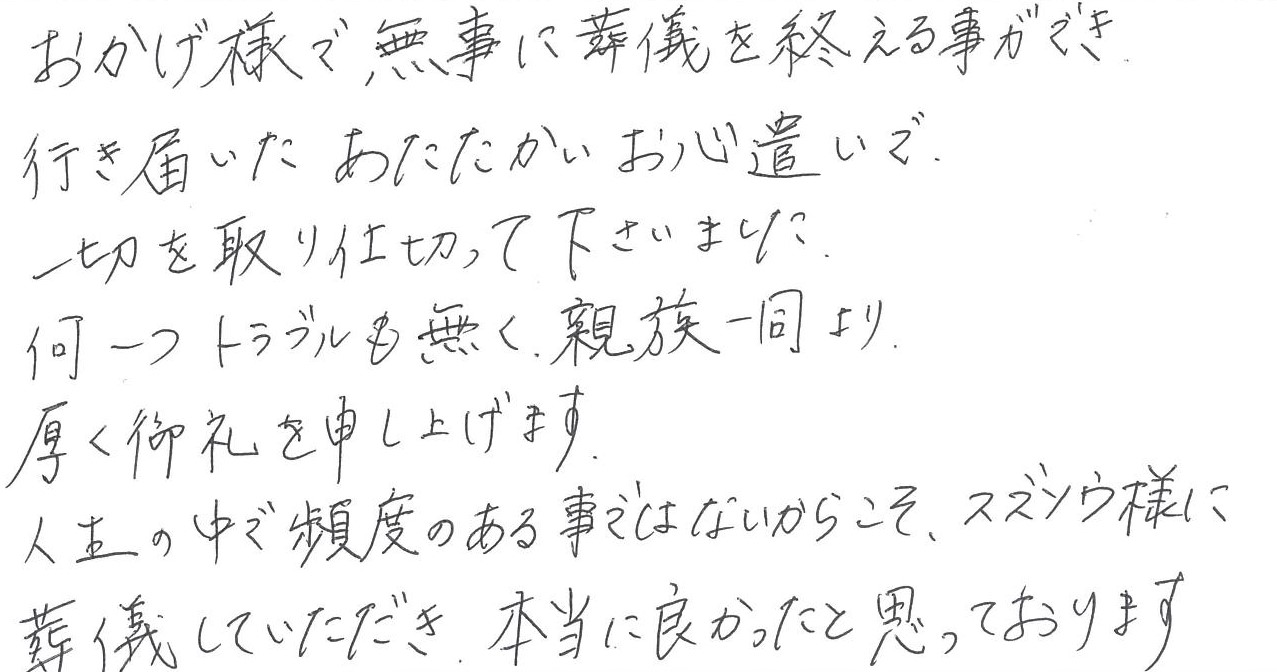 おかげ様で無事に葬儀を終える事ができ
行き届いた あたたかい お心遣いで、
一切を取り仕切って下さいました。
何一つトラブルも無く、親族一同より、
厚く御礼を申し上げます。
人生の中で頻度のある事ではないからこそ、スズソウ様に
葬儀していただき、本当に良かったと思っております